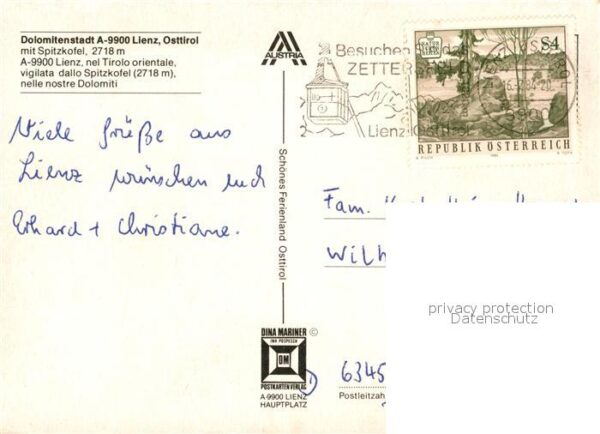 Dolomitenstadt A-9900 Lienz, Osttirol
mit Spitzkofel, 2718 m
A-9900 Lienz, nel Tirolo orientale,
vigilata dallo Spitzkofel (2718 m),
nelle nostre Dolomiti
Viele Grüße aus
Lienz wünschen euch
Erhard + Christiane.
AUSTRIA
Schönes Ferienland Osttirol
DINA MARINER ©
INH POPESCH
DM
POSTKARTENVERLAG
A-9900 LIENZ
HAUPTPLATZ
Besuchen
ZETTER
Lienz/Osttirol
S4
REPUBLIK ÖSTERREICH
Fam.
Wilh
privacy protection
Datenschutz
6345
Postleitzahl